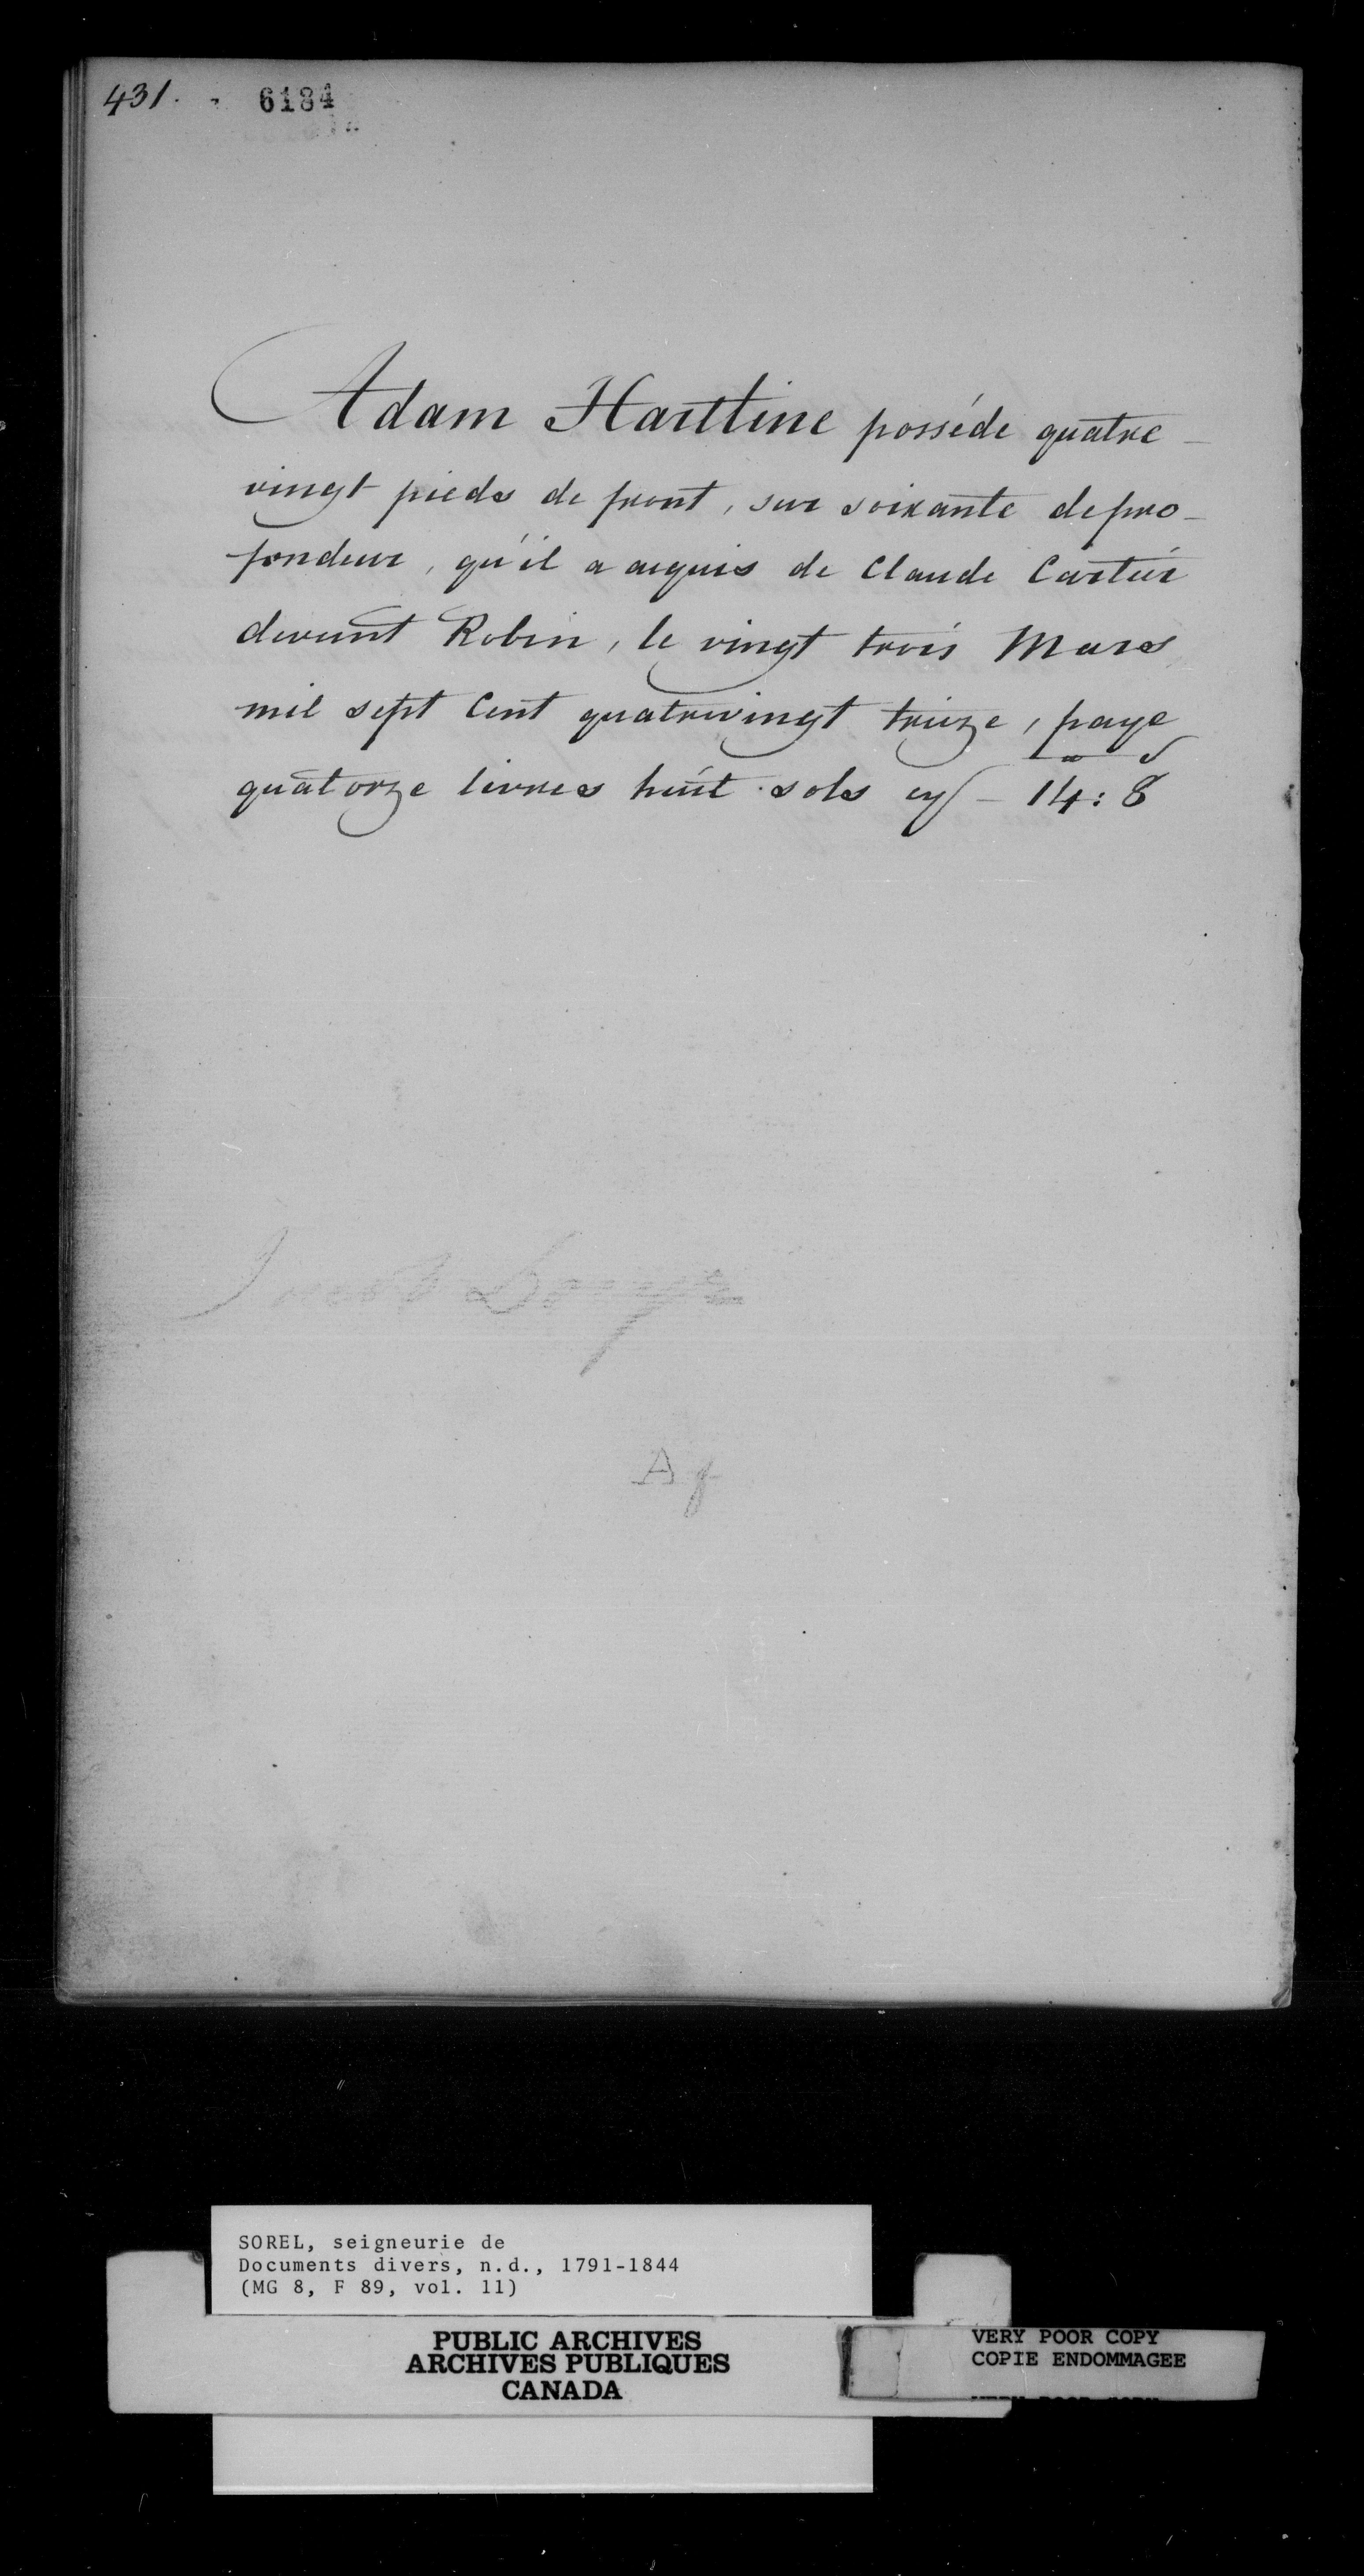 431. 6184
Adam Harttine posséde quatre -
vingt pieds de front, sur soixante de pro-
fondeur, qu'il a acquis de Claude Cartier
devant Robin, le vingt trois Mars
mil sept Cent quatrevingt trieze, paye
quatorze livres huit sols cy - 14: 8
A f
SOREL, seigneurie de
Documents divers, n.d., 1791-1844
(MG 8, F 89, vol. 11)
PUBLIC ARCHIVES
ARCHIVES PUBLIQUES
CANADA
VERY POOR COPY
COPIE ENDOMMAGEE